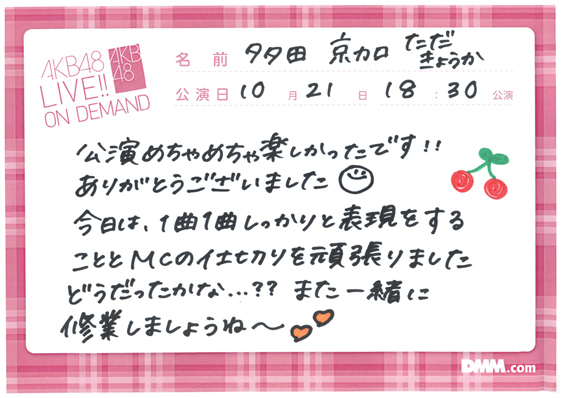 AKB48
LIVE!!
ON DEMAND
AKB
48
名前 多田 京加 ただ
きょうか
公演日 10月21日 18:30公演
公演めちゃめちゃ楽しかったです!!
ありがとうございました
今日は、1曲1曲しっかりと表現をする
こととMCのイ士切りを頑張りました
どうだったかな...?? また一緒に
修業しましょうね〜
DMM.com